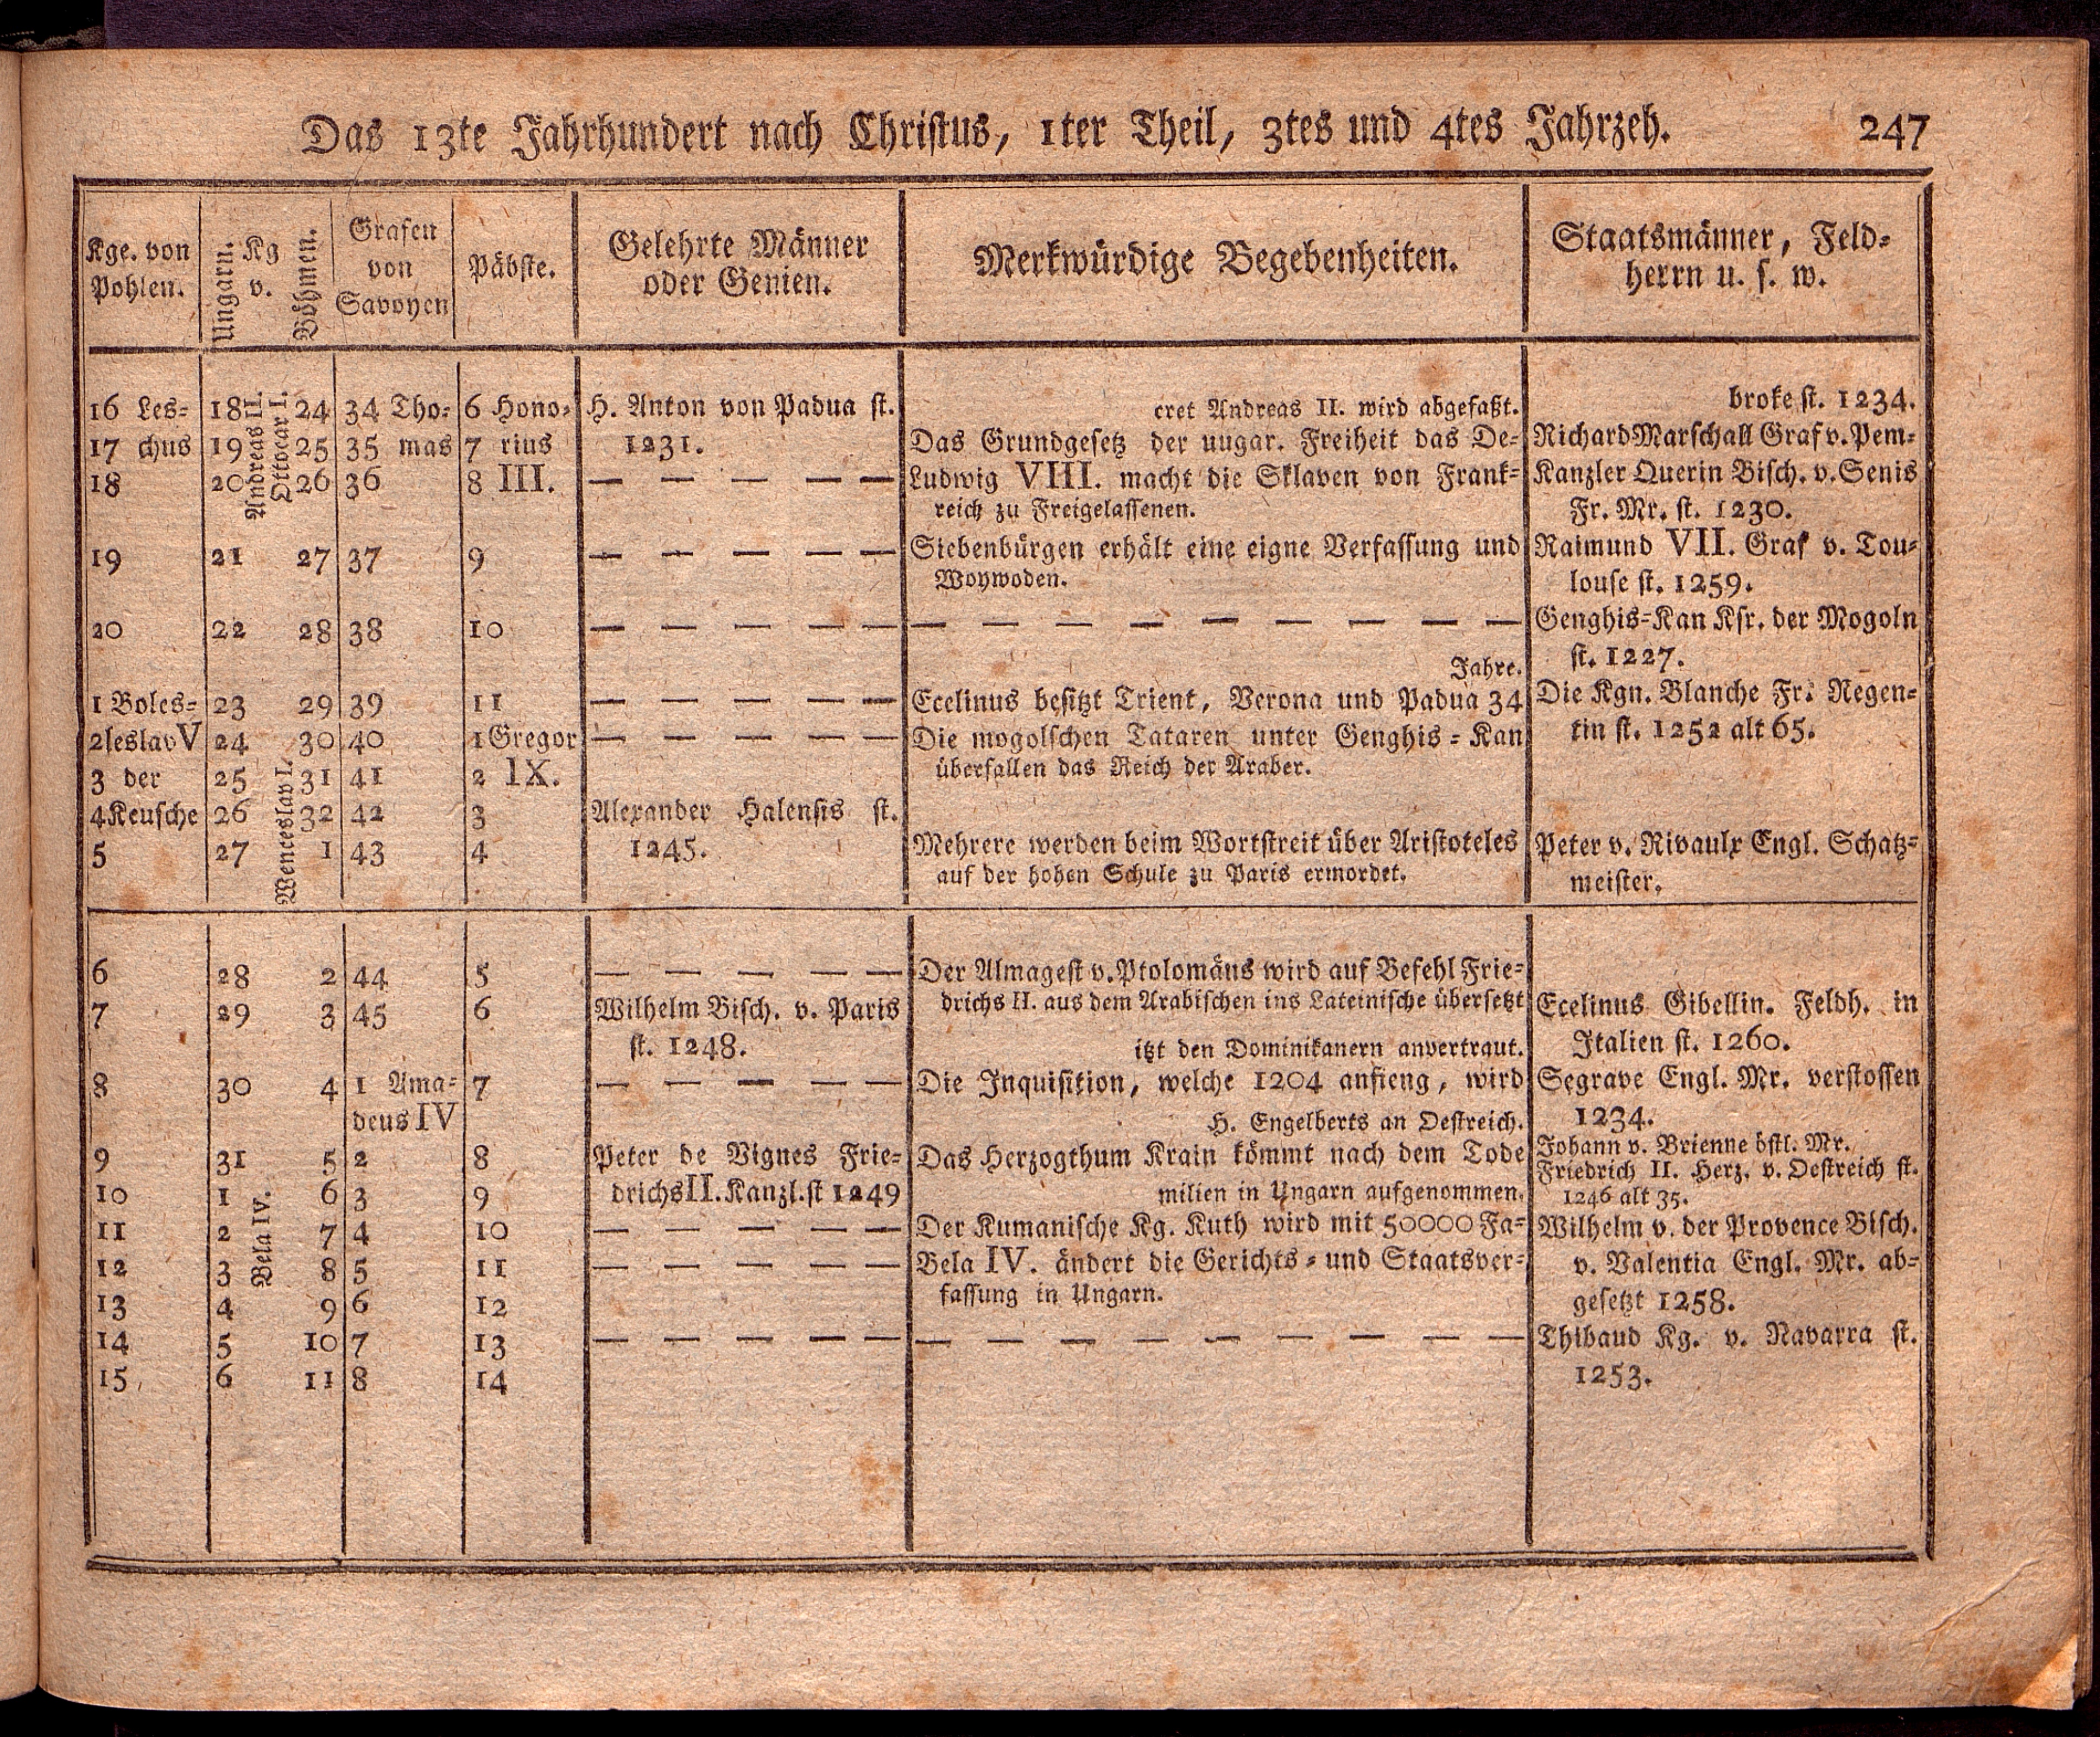 Das 13te Jahrhundert nach Christus, 1ter Theil, 3tes und 4tes Jahrzeh. 247
Kge. von
Pohlen.
Ungarn.
Kg
v.
Böhmen.
Grafen
von
Savoyen
Päbste.
Gelehrte Männer
oder Genien.
Merkwürdige Begebenheiten.
Staatsmänner, Feld-
herrn u. s. w.
16 Les-
17 chus
18
19
20
1 Boles-
2seslavV
3 der
4Keusche
5
18
19
20
21
22
23
24
25
26
27
Andreas II.
Ottocar I.
Wenceslav I.
24
25
26
27
28
29
30
31
32
1
34 Tho-
35 mas
36
37
38
39
40
41
42
43
6 Hono-
7 rius
8 III.
9
10
11
1Gregor
2 IX.
3
4
H. Anton von Padua st.
1231.
— — — — —
— — — — —
— — — — —
— — — — —
— — — — —
Alexander Halensis st.
1245.
cret Andreas II. wird abgefaßt.
Das Grundgesetz der uugar. Freiheit das De-
Ludwig VIII. macht die Sklaven von Frank-
reich zu Freigelassenen.
Siebenbürgen erhält eine eigne Verfassung und
Woywoden.
— — — — — — — — —
Jahre.
Ecelinus besitzt Trient, Verona und Padua 34
Die mogolschen Tataren unter Genghis-Kan
überfallen das Reich der Araber.
Mehrere werden beim Wortstreit über Aristoteles
auf der hohen Schule zu Paris ermordet.
broke st. 1234.
Richard Marschall Graf v. Pem-
Kanzler Querin Bisch. v. Senis
Fr. Mr. st. 1230.
Raimund VII. Graf v. Tou-
louse st. 1259.
Genghis-Kan Ksr. der Mogoln
st. 1227.
Die Kgn. Blanche Fr. Regen-
tin st. 1252 alt 65.
Peter v. Rivaulx Engl. Schatz-
meister.
6
7
8
9
10
11
12
13
14
15
28
29
30
31
1
2
3
4
5
6
Bela IV.
2
3
4
5
6
7
8
9
10
11
44
45
1 Ama-
deus IV
2
3
4
5
6
7
8
5
6
7
8
9
10
11
12
13
14
— — — — —
Wilhelm Bisch. v. Paris
st. 1248.
— — — — —
Peter de Vignes Frie-
drichs II. Kanzl. st 1249
— — — — —
— — — — —
— — — — —
Der Almagest v. Ptolomäus wird auf Befehl Frie-
drichs II. aus dem Arabischen ins Lateinische übersetzt
itzt den Dominikanern anvertraut.
Die Inquisition, welche 1204 anfieng, wird
H. Engelberts an Oestreich.
Das Herzogthum Krain kömmt nach dem Tode
milien in Ungarn aufgenommen.
Der Kumanische Kg. Kuth wird mit 50000 Fa-
Bela IV. ändert die Gerichts- und Staatsver-
fassung in Ungarn.
— — — — — — — — —
Ecelinus Gibellin. Feldh. in
Italien st. 1260.
Segrave Engl. Mr. verstossen
1234.
Johann v. Brienne östl. Mr.
Friedrich II. Herz. v. Oestreich st.
1246 alt 35.
Wilhelm v. der Provence Bisch.
v. Valentia Engl. Mr. ab-
gesetzt 1258.
Thibaud Kg. v. Navarra st.
1253.